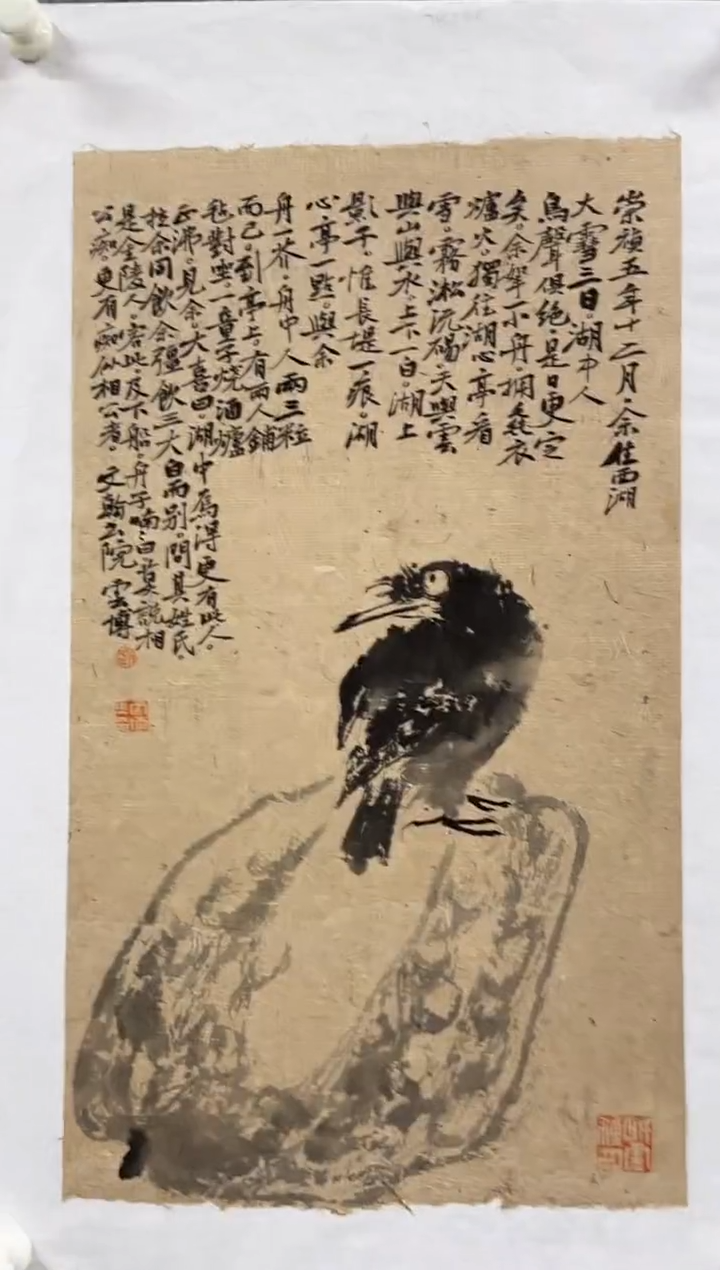 崇禎五年十二月。余住西湖
大雪三日。湖中人
鳥聲俱絕。是日更定
矣。余拏一小舟。擁毳衣
爐火。獨往湖心亭看
雪。霧淞沆碭。天與雲
與山與水。上下一白。湖上
影子。惟長堤一痕。湖
心亭一點。與余
舟一芥。舟中人兩三粒
而已。到亭上。有兩人鋪
氈對坐。一童子燒酒爐
正沸。見余。大喜曰。湖中焉得更有此人。
拉余同飲。余彊飲三大白而別。問其姓氏。
是金陵人。客此。及下船。舟子喃〻曰。莫說相
公痴。更有痴似相公者。文翰 院 雲博